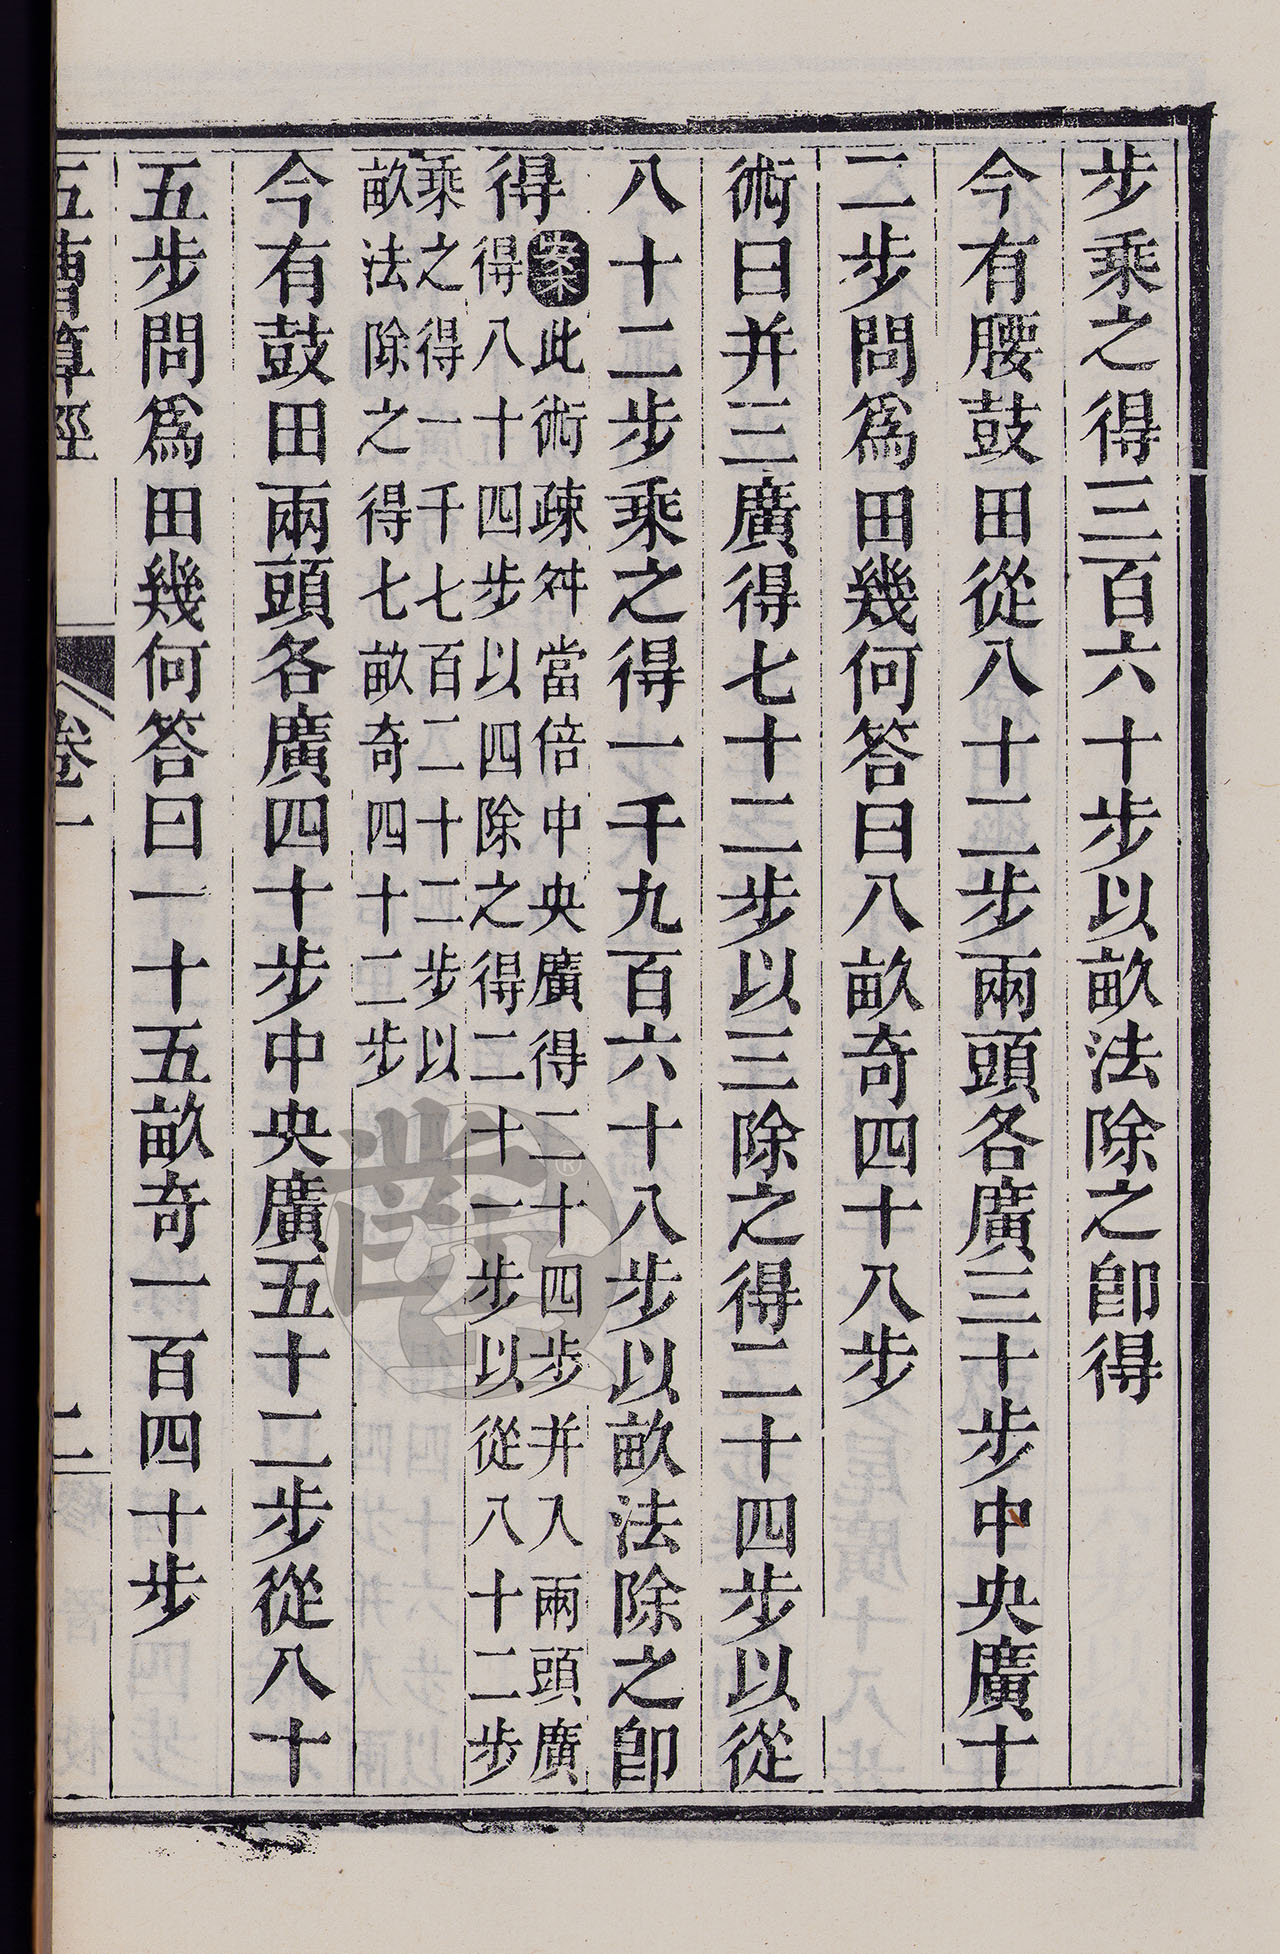 步乘之得三百六十步以畝法除之卽得
今有腰鼓田從八十二步兩頭各廣三十步中央廣十
二步問爲田幾何答曰八畝奇四十八步
術曰并三廣得七十二步以三除之得二十四步以從
八十二步乘之得一千九百六十八步以畝法除之卽
得
案此術疎舛當倍中央廣得二十四步并入兩頭廣
得八十四步以四除之得二十一步以從八十二步
乘之得一千七百二十二步以
畝法除之得七畝奇四十二步
今有鼓田兩頭各廣四十步中央廣五十二步從八十
五步問爲田幾何答曰一十五畝奇一百四十步
五曹算經 卷一 二